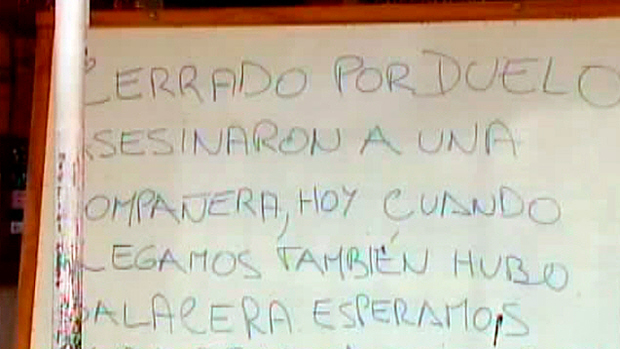 CERRADO POR DUELO
ASESINARON A UNA
COMPAÑERA, HOY CUANDO
LLEGAMOS TAMBIÉN HUBO
BALACERA ESPERAMOS